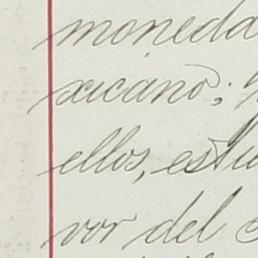 moneda
xicano;
ellos, estu
vor del